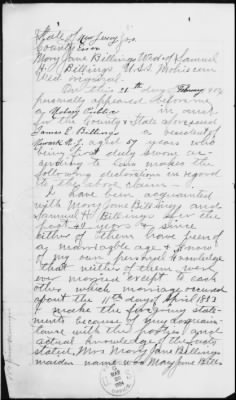 State of New Jersey
County Essex
Mary Jane Billings Wid of Samuel
H. Billings U.S.S. Mohican
Wid original.
On this 28th day February
personally appeared before me
a Notary Public in and
for the County & State aforesaid
James E. Billings a resident of
Newark N.J. aged 57 years who
being first duly sworn ac-
cording to Law makes the
following declarations in regard
to the above claim
I have been acquainted
with Mary Jane Billings and
Samuel H. Billings over the
past years & since
either of them have been of
a marriagable age & know
of my own personal knowledge
that neither of them were
ever married except to each
other which marriage occured
about the 11th day of April 1863
I make the foregoing state-
ments because of my acquain-
tance with the parties and
actual knowledge of the facts
stated, Mrs Mary Jane Billings
maiden name was Mary Jane